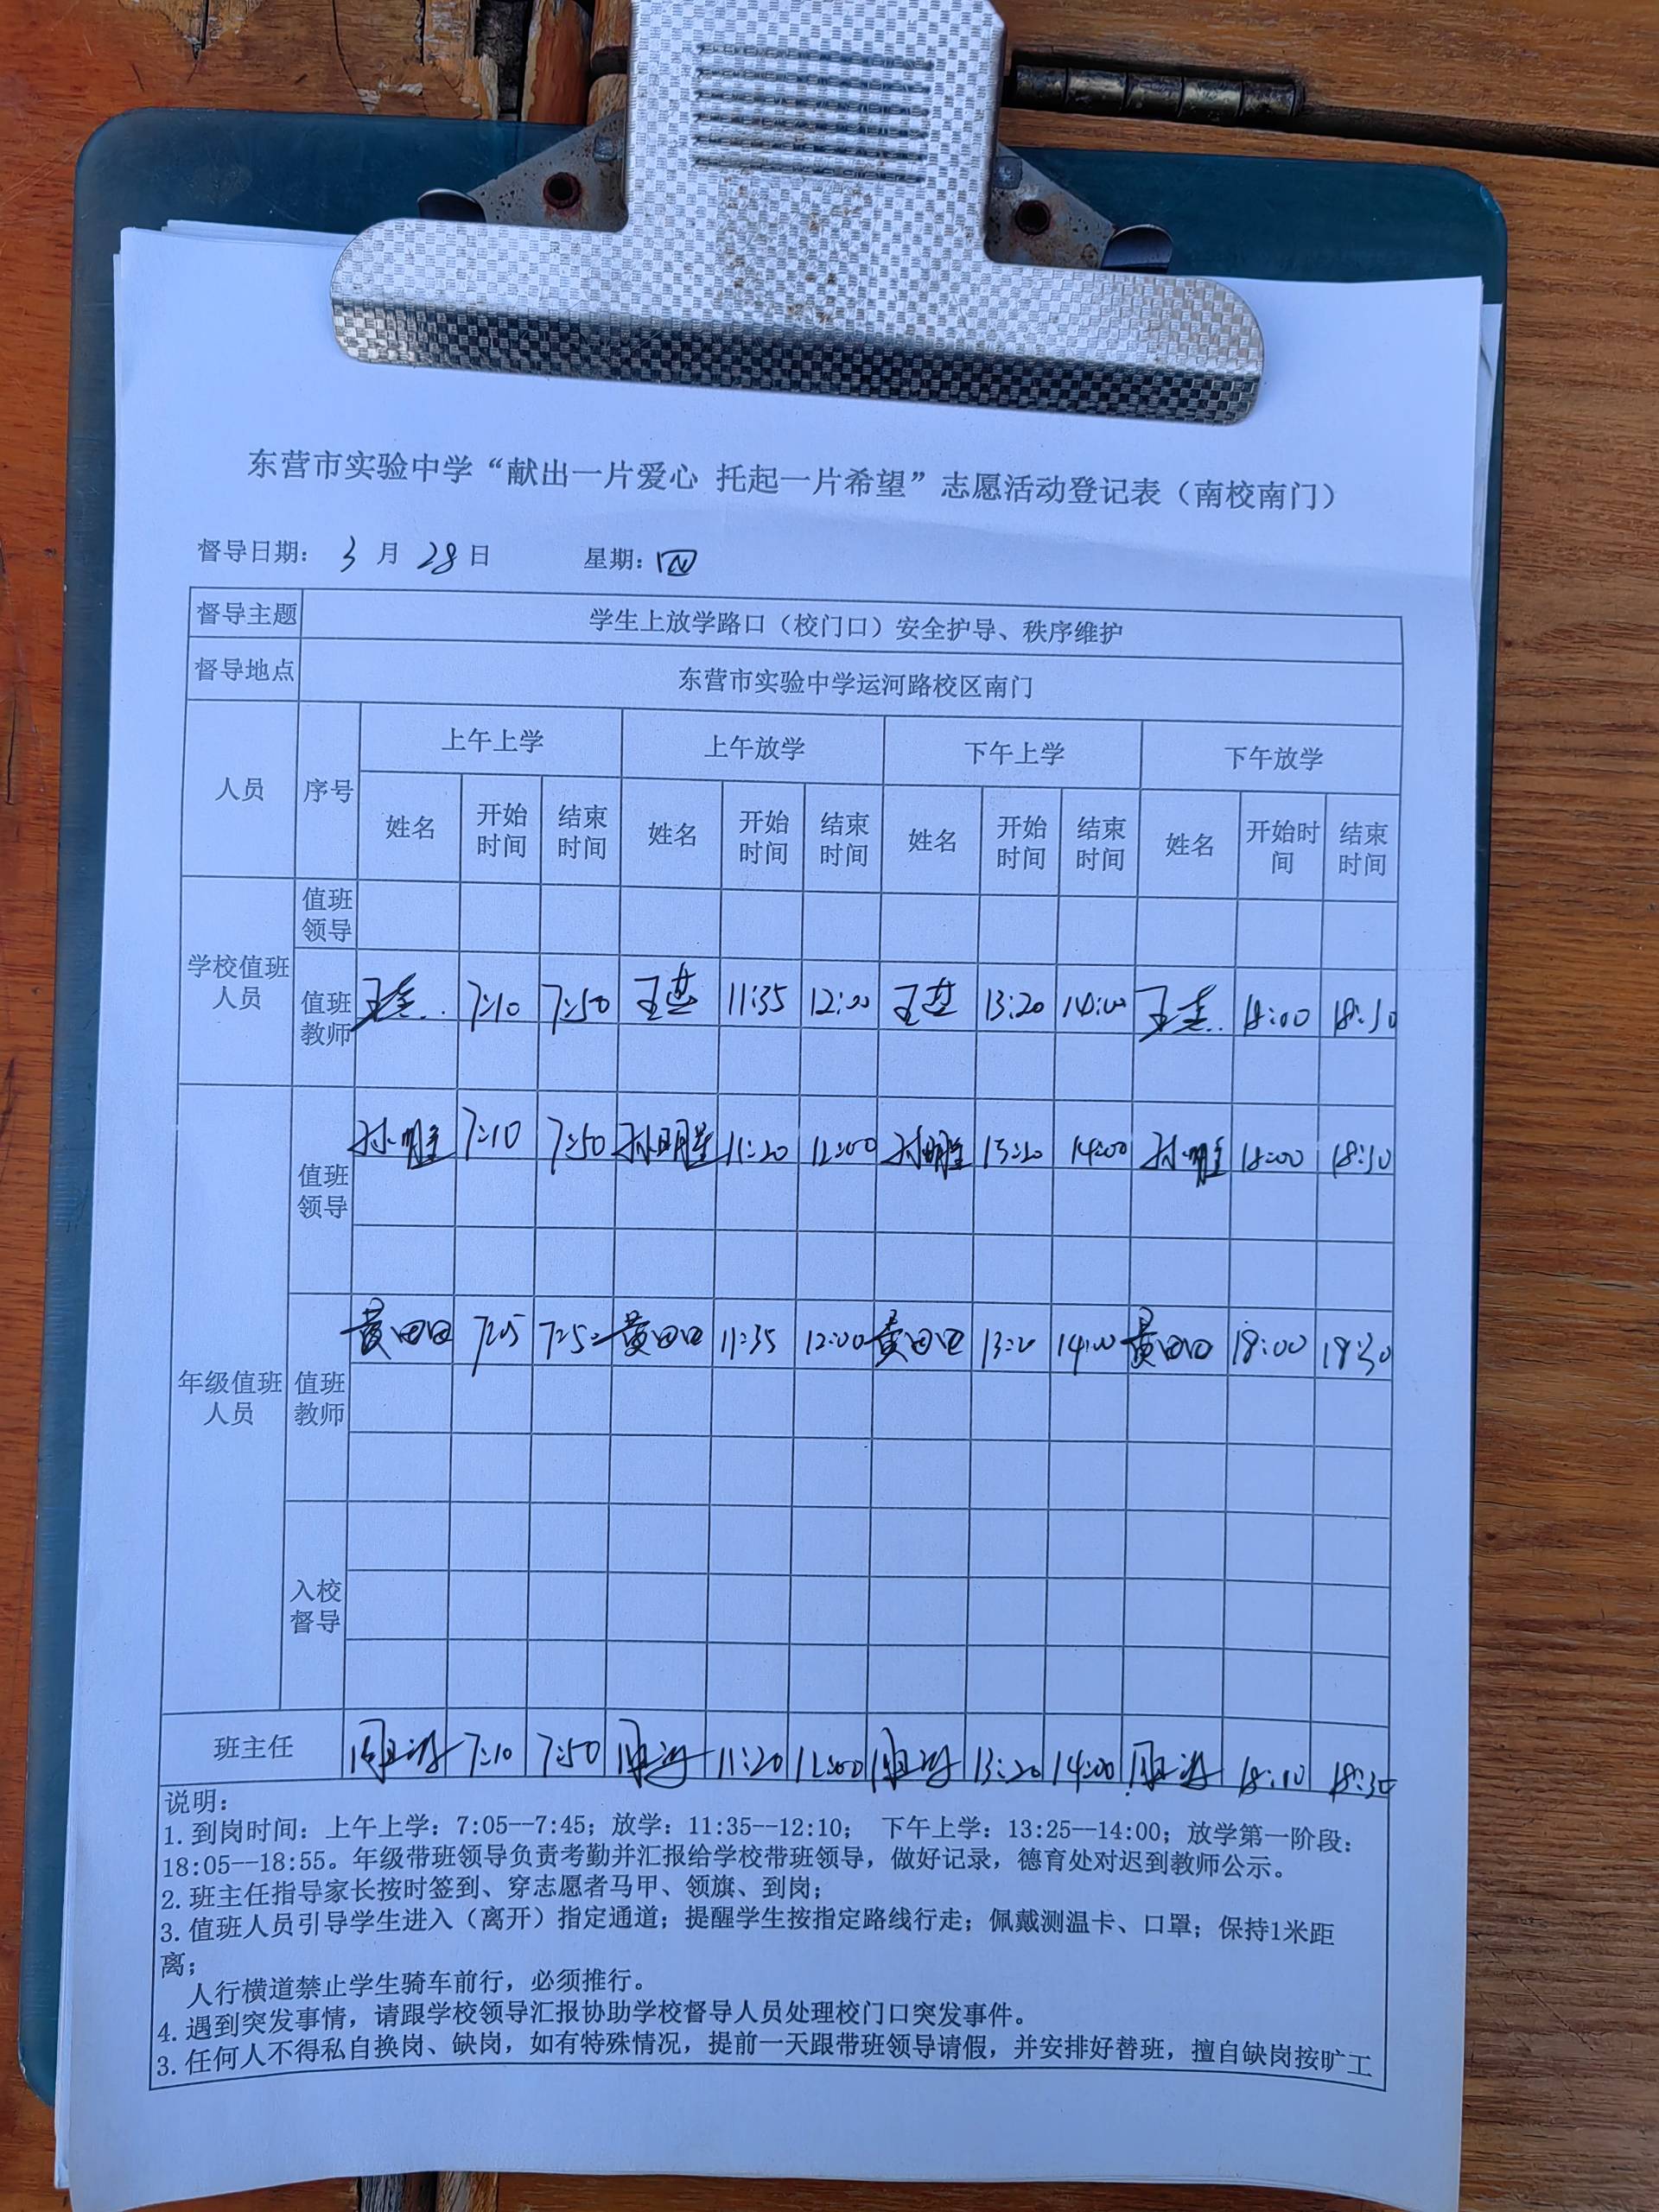 东营市实验中学“献出一片爱心 托起一片希望”志愿活动登记表（南校南门）
督导日期： 3 月 28 日 星期：四
督导主题 学生上放学路口（校门口）安全护导、秩序维护
督导地点 东营市实验中学运河路校区南门
人员 序号 上午上学 上午放学 下午上学 下午放学
姓名 开始时间 结束时间 姓名 开始时间 结束时间 姓名 开始时间 结束时间 姓名 开始时间 结束时间
学校值班人员
值班领导
值班教师 7:10 7:50 11:35 12:00 13:20 14:00 18:00 18:30
年级值班人员
值班领导 7:10 7:50 11:20 12:00 13:20 14:00 18:00 18:30
值班教师 黄田田 黄田田 11:35 12:00 黄田田 13:20 14:00 黄田田 18:00 18:30
入校督导
班主任 7:10 7:50 11:20 12:00 13:20 14:00 18:10 18:30
说明：
1.到岗时间：上午上学：7:05--7:45；放学：11:35--12:10； 下午上学：13:25--14:00；放学第一阶段：
18:05--18:55。年级带班领导负责考勤并汇报给学校带班领导，做好记录，德育处对迟到教师公示。
2.班主任指导家长按时签到、穿志愿者马甲、领旗、到岗；
3.值班人员引导学生进入（离开）指定通道；提醒学生按指定路线行走；佩戴测温卡、口罩；保持1米距
离；
人行横道禁止学生骑车前行，必须推行。
4.遇到突发事情，请跟学校领导汇报协助学校督导人员处理校门口突发事件。
3.任何人不得私自换岗、缺岗，如有特殊情况，提前一天跟带班领导请假，并安排好替班，擅自缺岗按旷工